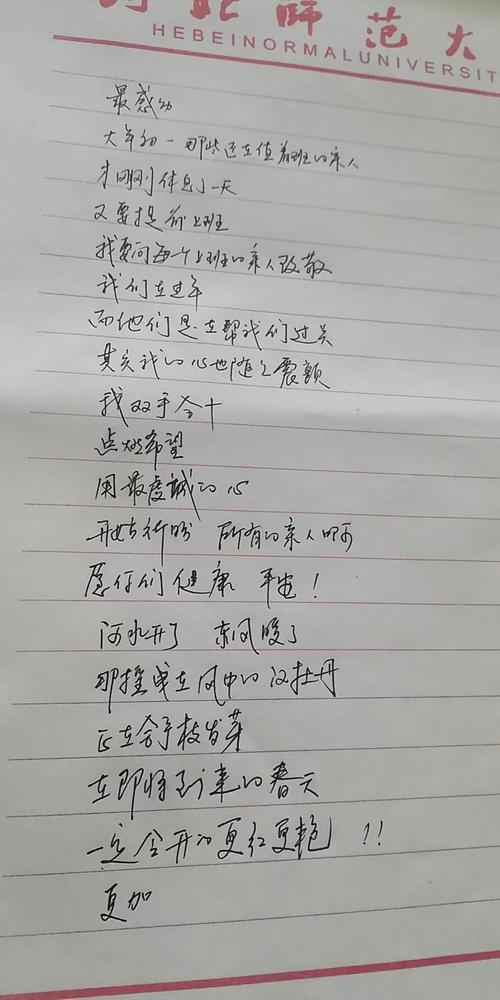 河北师范大
HEBEINORMALUNIVERSIT
最感动
大年初一那些还在值着班的亲人
才刚刚休息了一天
又要提前上班
我要向每个上班的亲人致敬
我们在过年
而他们是在帮我们过关
其实我的心也随之震颤
我双手合十
点燃希望
用最虔誠的心
开始祈盼 所有的亲人啊
愿你们健康 平安！
河水开了 东风暖了
那摇曳在风中的汉牡丹
正在含予枝发芽
在即将到来的春天
一定会开的更红更艳！！
更加